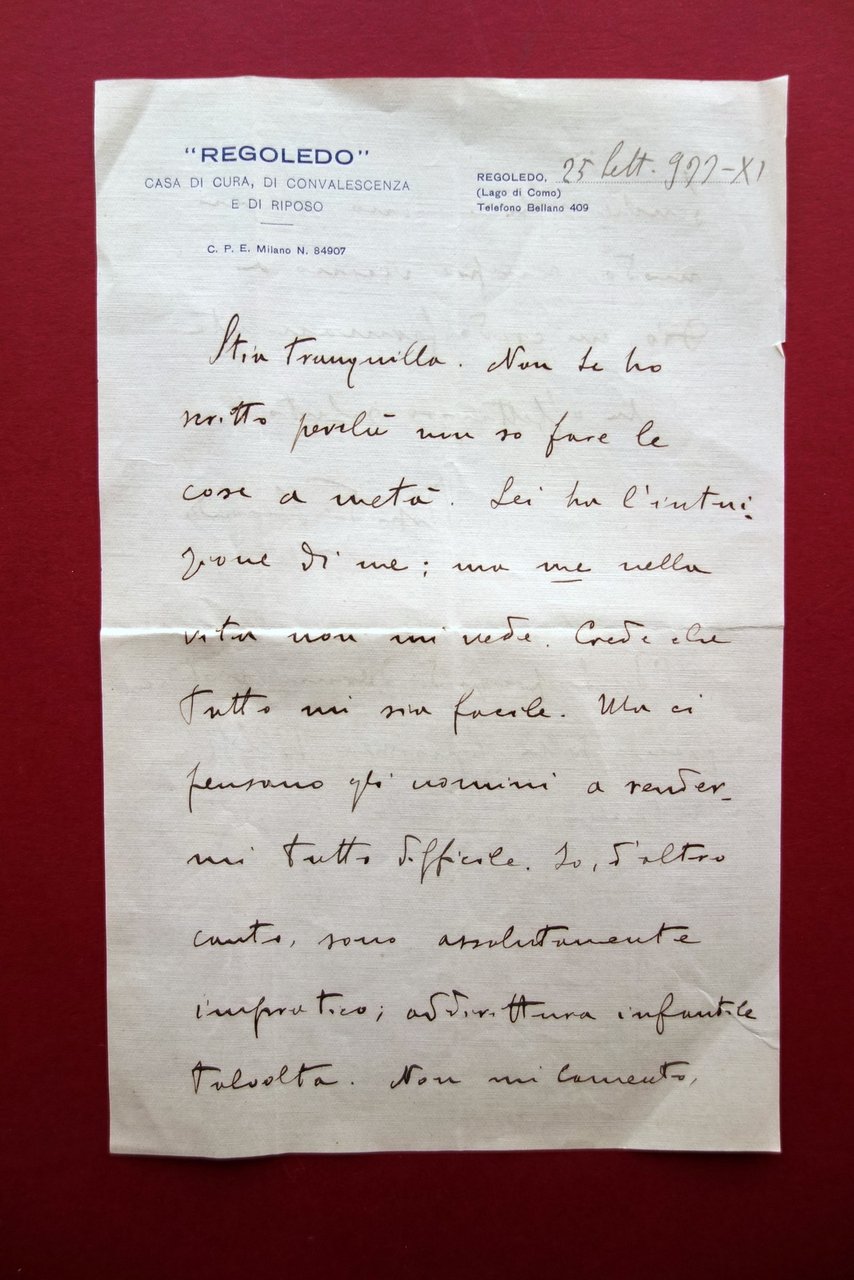 "REGOLEDO"
CASA DI CURA, DI CONVALESCENZA
E DI RIPOSO
C. P. E. Milano N. 84907
REGOLEDO, 25 Sett. 933-XI
(Lago di Como)
Telefono Bellano 409
Stia tranquilla. Non Le ho
scritto perchè non so fare le
cose a metà. Lei ha l'intui-
zione di me; ma me nella
vita non mi vede. Crede che
tutto mi sia facile. Ma ci
pensano gli uomini a render-
mi tutto difficile. Io, d'altro
canto, sono assolutamente
impratico; addirittura infantile
talvolta. Non mi lamento,